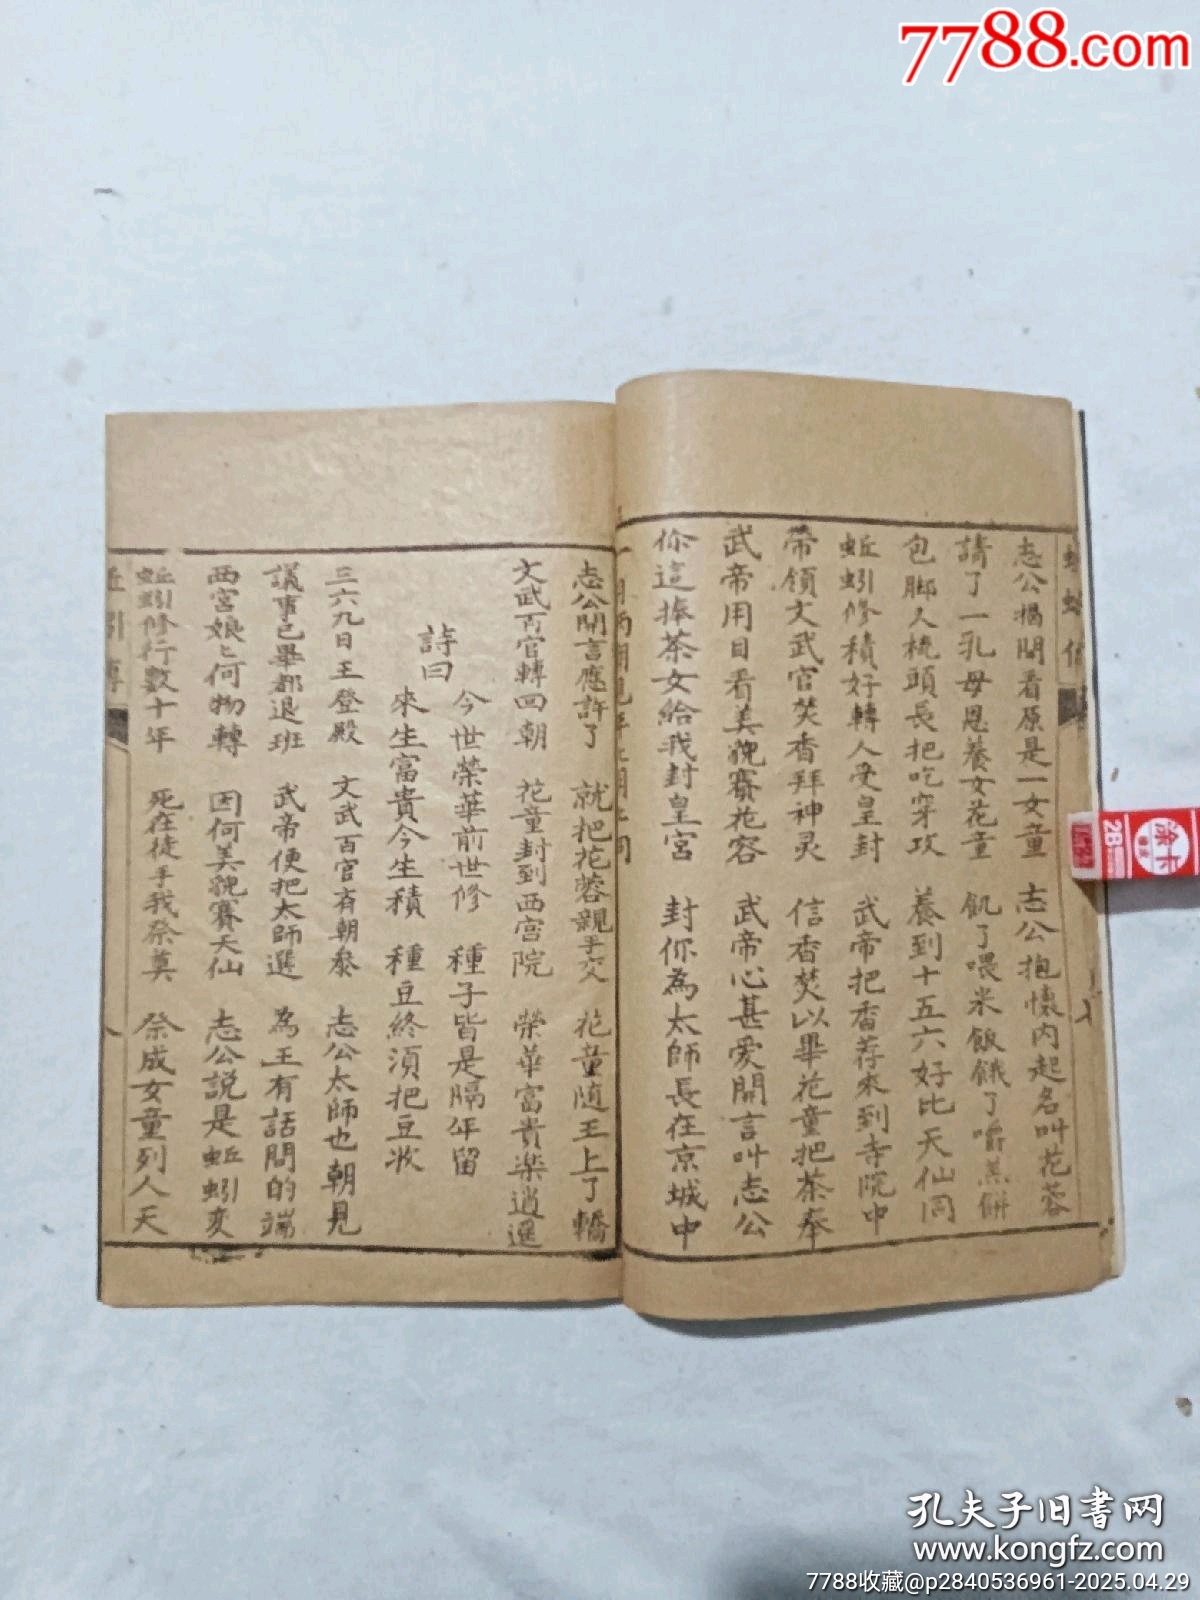 7788.com
志公揭開看原是一女童 志公抱懷內起名叫花蓉
請了一乳母恩養女花童 飢了喂米飯餓了嚼羔餅
包脚人梳頭長把吃穿攻 養到十五六好比天仙同
蚯蚓修積好轉人受皇封 武帝把香荐來到寺院中
帶領文武官焚香拜神灵 信香焚以畢花童把茶奉
武帝用目看美貌賽花容 武帝心甚爱開言叫志公
你這捧茶女給我封皇宮 封你為太師長在京城中
志公開言應許了 就把花蓉親手交 花童随王上了轎
文武百官轉回朝 花童封到西宮院 榮華富貴楽逍遥
詩曰
今世榮華前世修 種子皆是隔年留
來生富貴今生積 種豆終湏把豆收
三六九日王登殿 文武百官有朝叅 志公太師也朝見
議事已畢都退班 武帝便把太師選 為王有話問的端
西宮娘〻何物轉 因何美貌賽天仙 志公説是蚯蚓变
蚯蚓修行數十年 死在徒手我祭奠 祭成女童列人天
蚯引傳
八
涂卡
2B
孔夫子旧書网
www.kongfz.com
7788收藏@p2840536961-2025.04.29